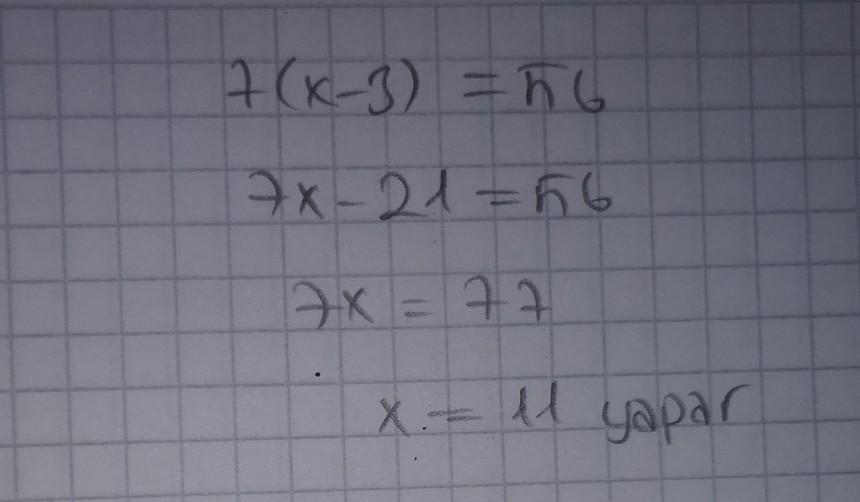 7(x-3) = 56
7x - 21 = 56
7x = 77
x = 11 yapar